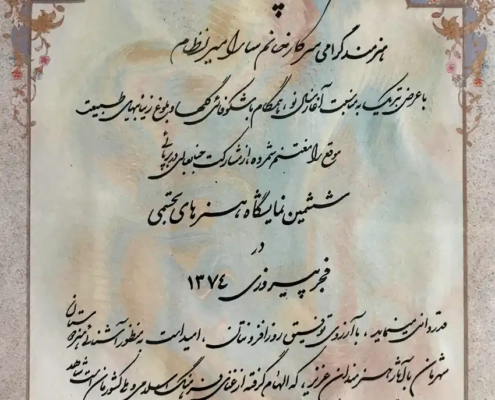 هنرمند گرامی سرکار خانم سارا امیر نظام
با عرض تبریک به مناسبت آغاز سال نو، همگام با شکوفائی گلها و بلوغ زیبائیهای طبیعت
موقع را مغتنم شمرده از مشارکت جنابعالی در برپائی
ششمین نمایشگاه هنرهای تجسمی
در
فجر پیروزی ۱۳۷۴
قدردانی مینماید، با آرزوی توفیق روزافزونتان، امیداست بمنظور آشنائی هنردوستان
شهرمان با آثار هنرمندان عزیز، که الهام گرفته از غنای فرهنگ اسلامی و ملی کشورمان است شاهد